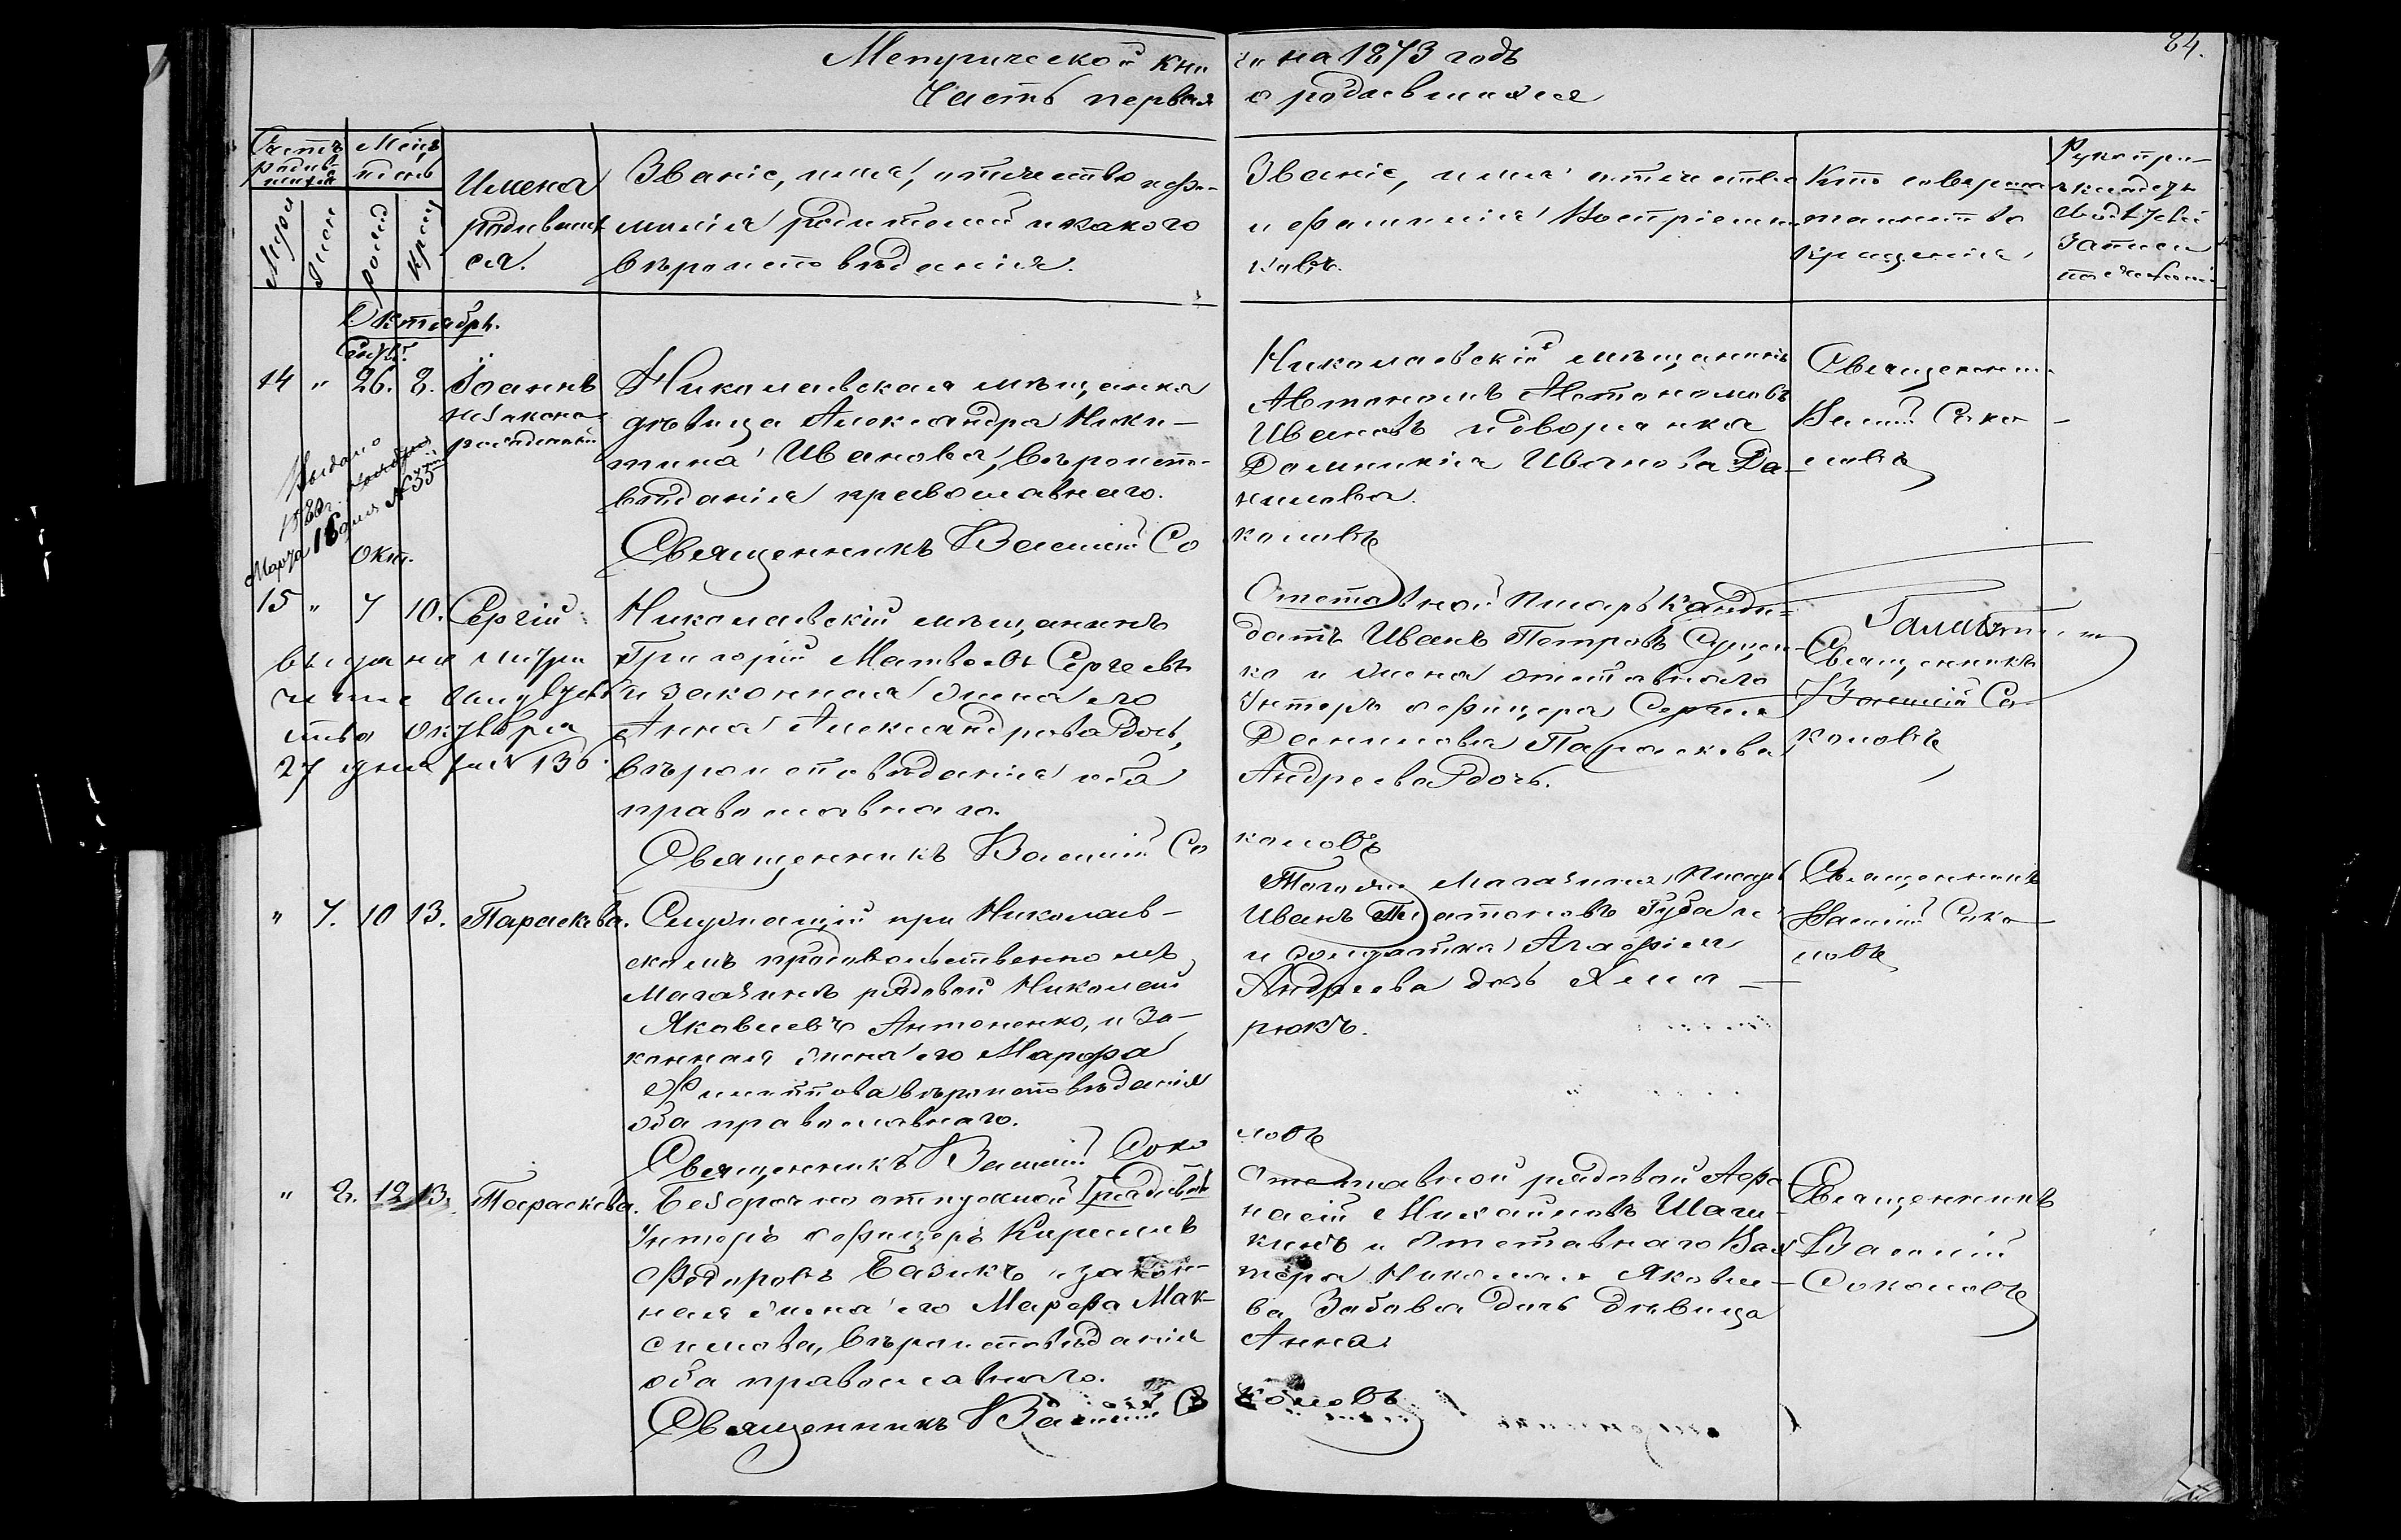 84.
Метрической кни ги на 1873 годъ
Часть первая о родившихся
Счетъ родив-шихся
Мѣсяцъ и день
Муж
Жен
рожд
Крещ
Имена родивших ся.
Званіе, имя, отчество и фа-
милія родителей и какого
вѣроисповѣданія.
Званіе, имя отчество
и фамилія Воспріемни
ковъ.
Кто соверша
таинство
крещенія
Рукопри-
кладство
свидѣтелей
записи
по желанію
Октябрь.
Сент.
14 " 26. 8. Іоаннъ
незаконо-
рожденный
Николаевская мѣщанка
дѣвица Александра Ники-
тина Иванова, вѣроиспо-
вѣданія православнаго.
Священникъ Василій Со коловъ
Николаевскій мѣщанинъ
Автономъ Автономовъ
Ивановъ и дворянка
Домникія Иванова Да-
нилова.
Священник
Васил. Соко-
ловъ
Выдано
188 г.
Марта 16 дня № 35
Окт.
15 " 7 10. Сергій
выдано метри
ческое свидѣтель
ство октября
27 дня за № 136.
Николаевскій мѣщанинъ
Григорій Матвѣевъ Сергеевъ
и законная жена его
Анна Александрова дочь,
вѣроисповѣданія оба
православнаго.
Священникъ Василій Со коловъ
Отставной Писарь Канди-
датъ Иванъ Петровъ Сущен-
ко и жена отставнаго
Унтеръ офицера Сергія
Данилова Параскева
Андреева дочь.
Священникъ
Василій Со-
коловъ
" 7. 10 13. Параскева.
Служащій при Николаев-
скомъ продовольственномъ
Магазинѣ рядовой Николай
Яковлевъ Антоненко, и за-
конная жена его Марфа
Филиппова вѣроисповѣданія
оба православнаго.
Священникъ Василій Соко ловъ
Того же Магазина, Писарь
Иванъ Платоновъ Губа и
и солдатка Агафія
Андреева дочь
рюкъ.
Священникъ
Василій Соко-
ловъ
" 8. 12 13. Параскева.
Безсрочно отпускной рядовой
Унтеръ офицеръ Кирилъ
Федоровъ Базикъ и закон-
ная жена его Марфа Мак-
симова, вѣроисповѣданія
оба православнаго.
Священникъ Василій Со коловъ
Отставной рядовой Афа
насій Михайловъ Шагин
кинъ и Отставнаго Вах
тера Николая Яковле-
ва Забава дочь дѣвица
Анна
Священникъ
Василій
Соколовъ